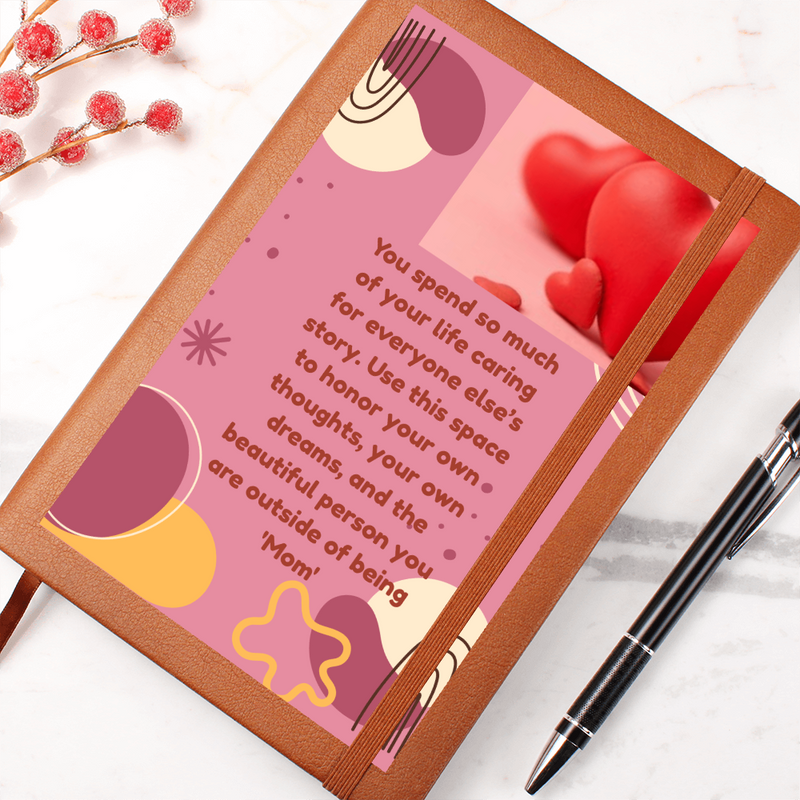 You spend so much
of your life caring
for everyone else's
story. Use this space
to honor your own
thoughts, your own
dreams, and the
beautiful person you
are outside of being
'Mom'